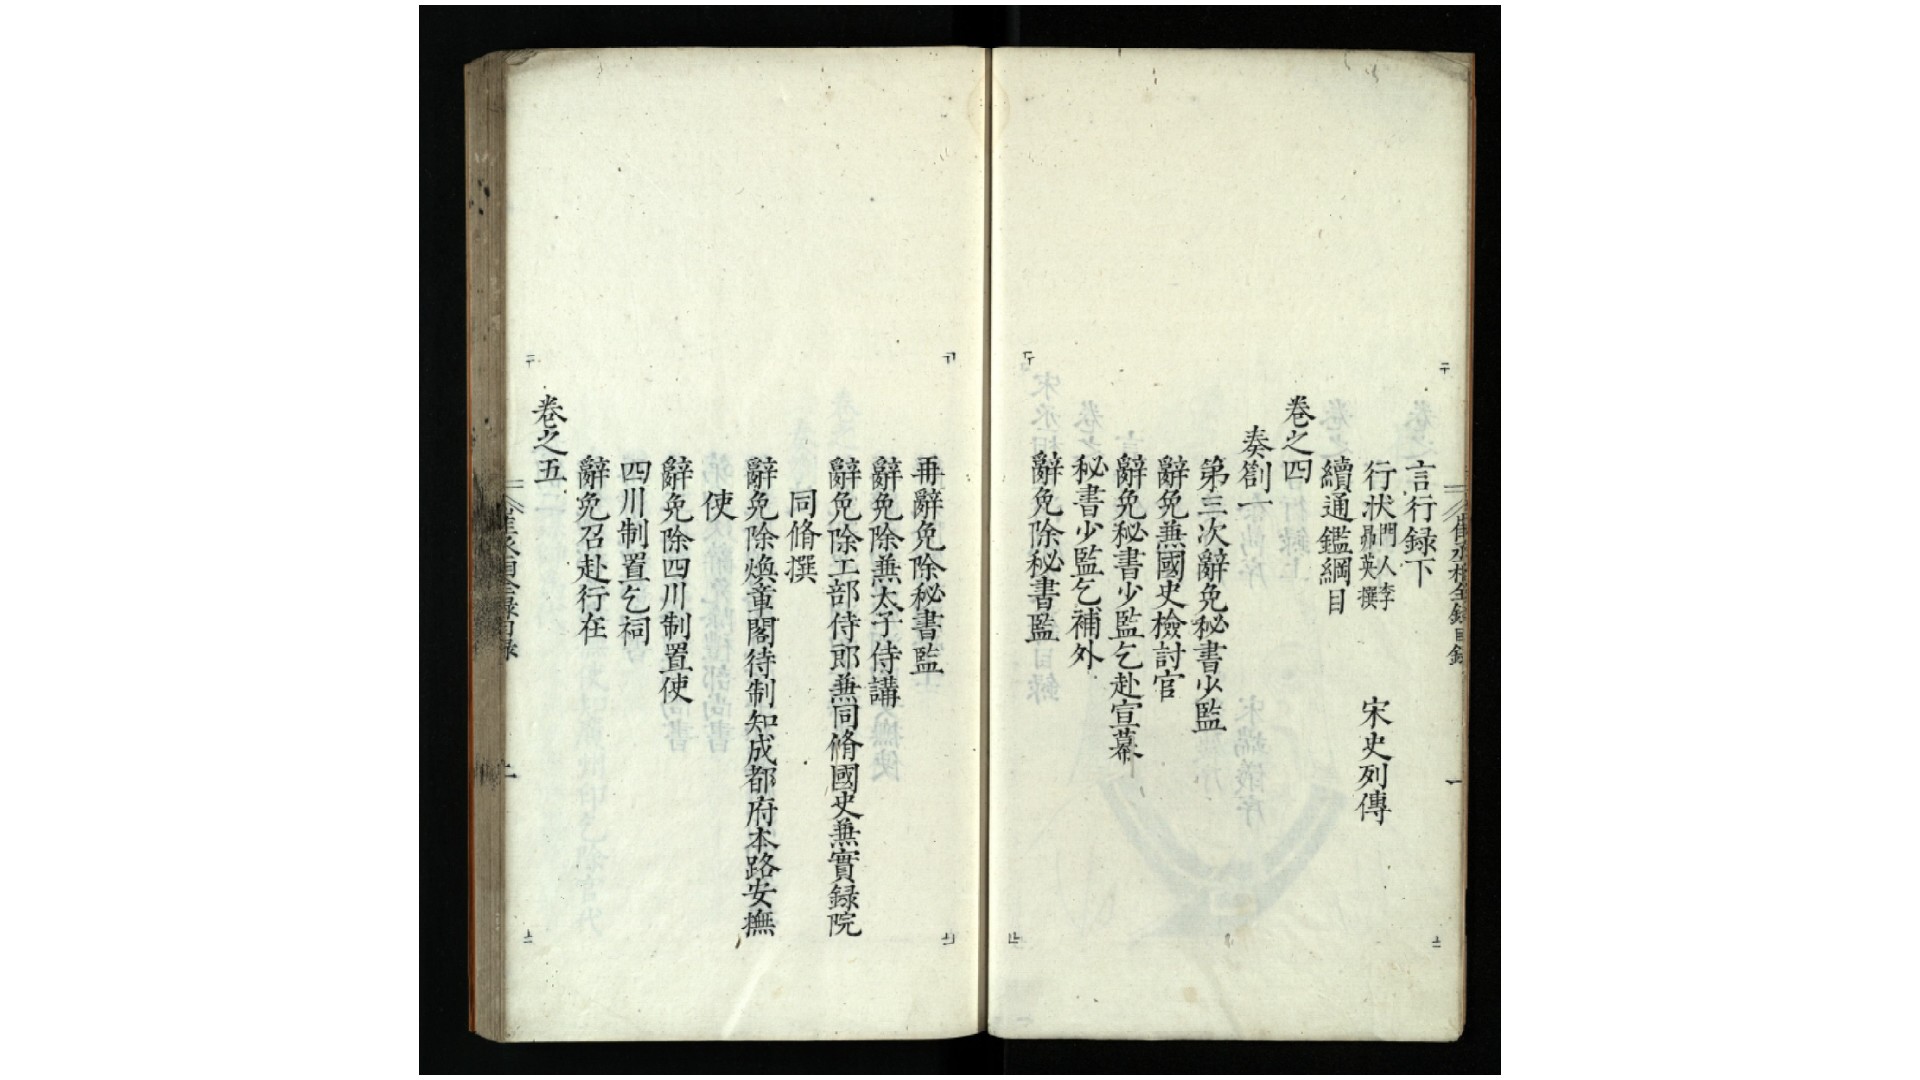 言行録下
行状門人李昴英撰 宋史列傳
續通鑑綱目
卷之四
奏劄一
第三次辭免秘書少監
辭免兼國史檢討官
辭免秘書少監乞赴宣幕
秘書少監乞補外
辭免除秘書監
崔丞相全録目録 一
再辭免除秘書監
辭免除兼太子侍講
辭免除工部侍郎兼同脩國史兼實録院
同脩撰
辭免除煥章閣待制知成都府本路安撫
使
辭免除四川制置使
四川制置乞祠
辭免召赴行在
卷之五